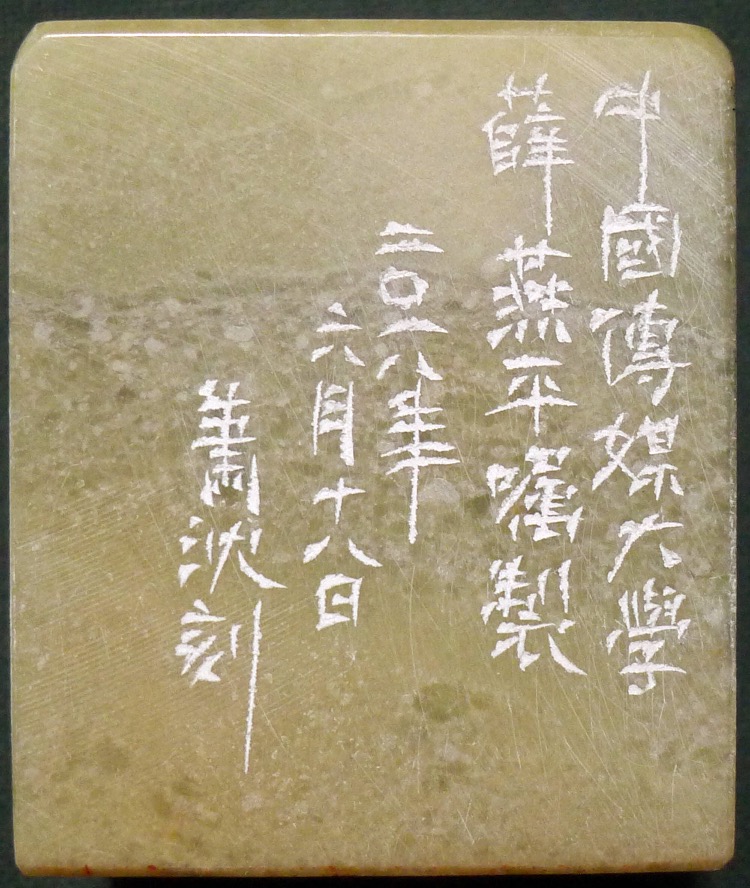 中國傳媒大學
薛燕平囑製
二〇一八年
六月十八日
蕭沈刻